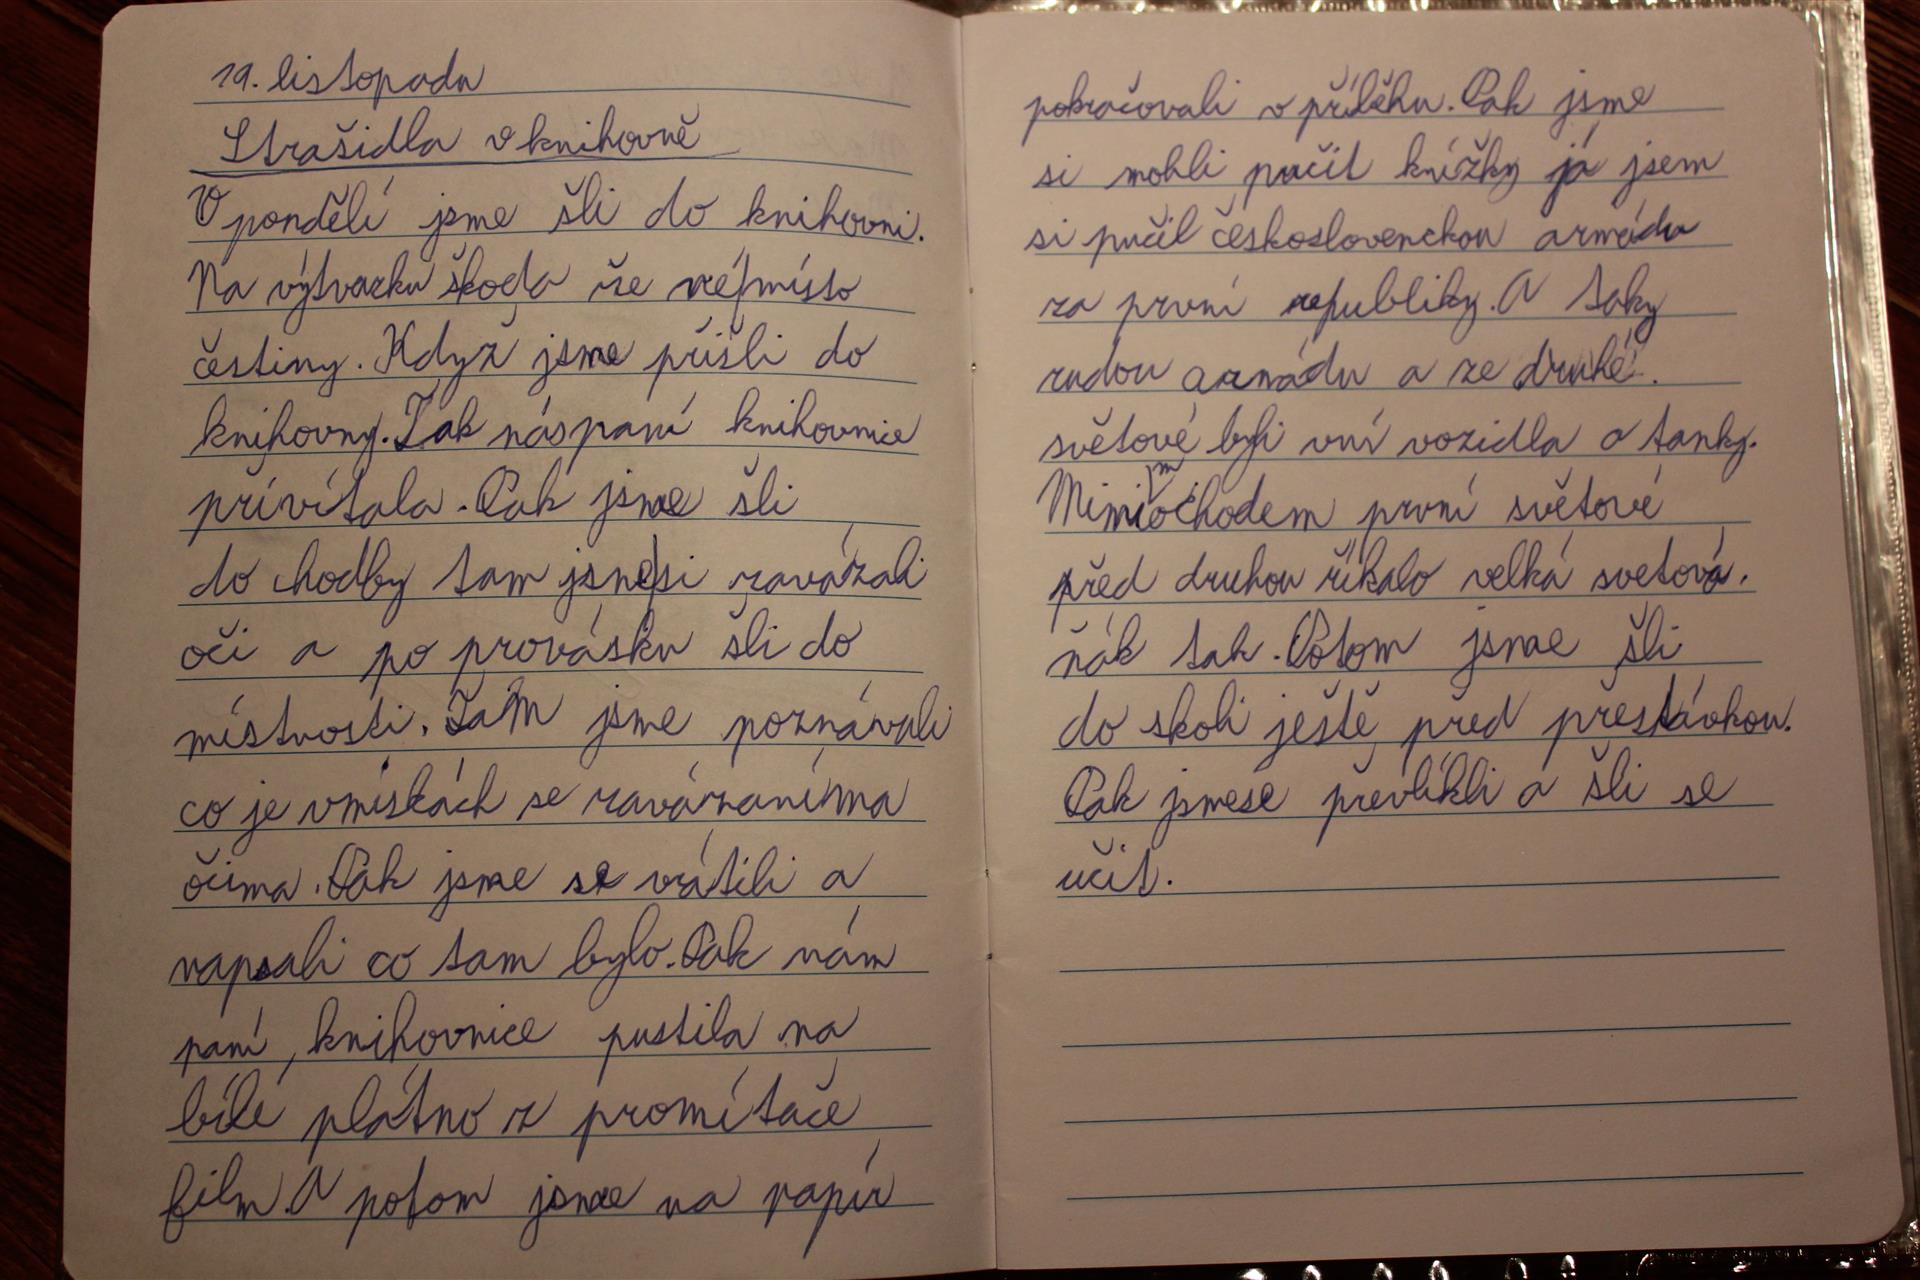 19. listopadu
Strašidla v knihovně
V pondělí jsme šli do knihovni.
Na výtvarku škoda že né místo
češtiny. Když jsme přišli do
knihovny. Tak nás paní knihovnice
přivítala. Pak jsme šli
do chodby tam jsme si zavázali
oči a po provásku šli do
místnosti. Tam jsme poznávali
co je vmiskách se zavázaníma
očima. Pak jsme se vrátili a
napsali co tam bylo. Pak nám
paní, knihovnice pustila na
bílé plátno z promítače
film. A potom jsme na papír
pokračovali v příběhu. Pak jsme
si mohli pučit knížky já jsem
si pučil československou armádu
za první republiky. A taky
rudou armádu a ze druhé.
světové byli vní vozidla a tanky.
Mimochodem první světové
před druhou říkalo velká svetová.
ňák tak. Potom jsme šli
do skoli ještě před přestávkou.
Pak jsmese převlíkli a šli se
učit.